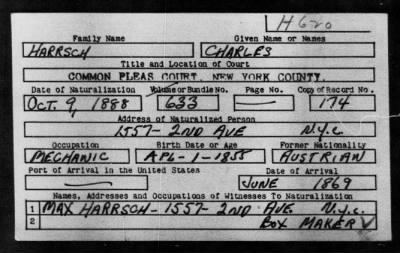 H620
Family Name Given Name or Names
HARRSCH CHARLES
Title and Location of Court
COMMON PLEAS COURT, NEW YORK COUNTY.
Date of Naturalization Volume or Bundle No. Page No. Copy of Record No.
OCT. 9, 1888 633 — 174
Address of Naturalized Person
1557- 2ND AVE N.Y.C
Occupation Birth Date or Age Former Nationality
MECHANIC APL-1-1855 AUSTRIAN
Port of Arrival in the United States Date of Arrival
— JUNE 1869
Names, Addresses and Occupations of Witnesses To Naturalization
1 MAX HARRSCH-1557- 2ND AVE. N.Y.C.
2 BOX MAKER